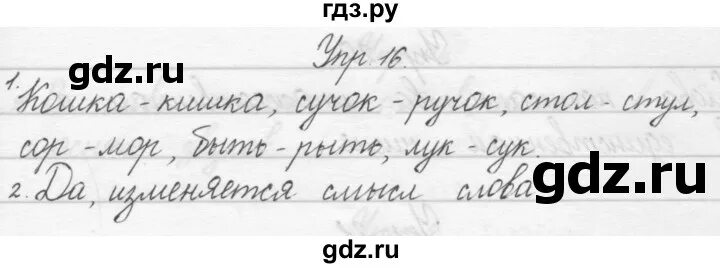 гдз.ру
Упр. 16.
1. Кошка - кишка, сучок - ручок, стол - стул,
сор - мор, быть - рыть, лук - сук.
2. Да, изменяется смысл слова
gdz.ru
gdz.ru